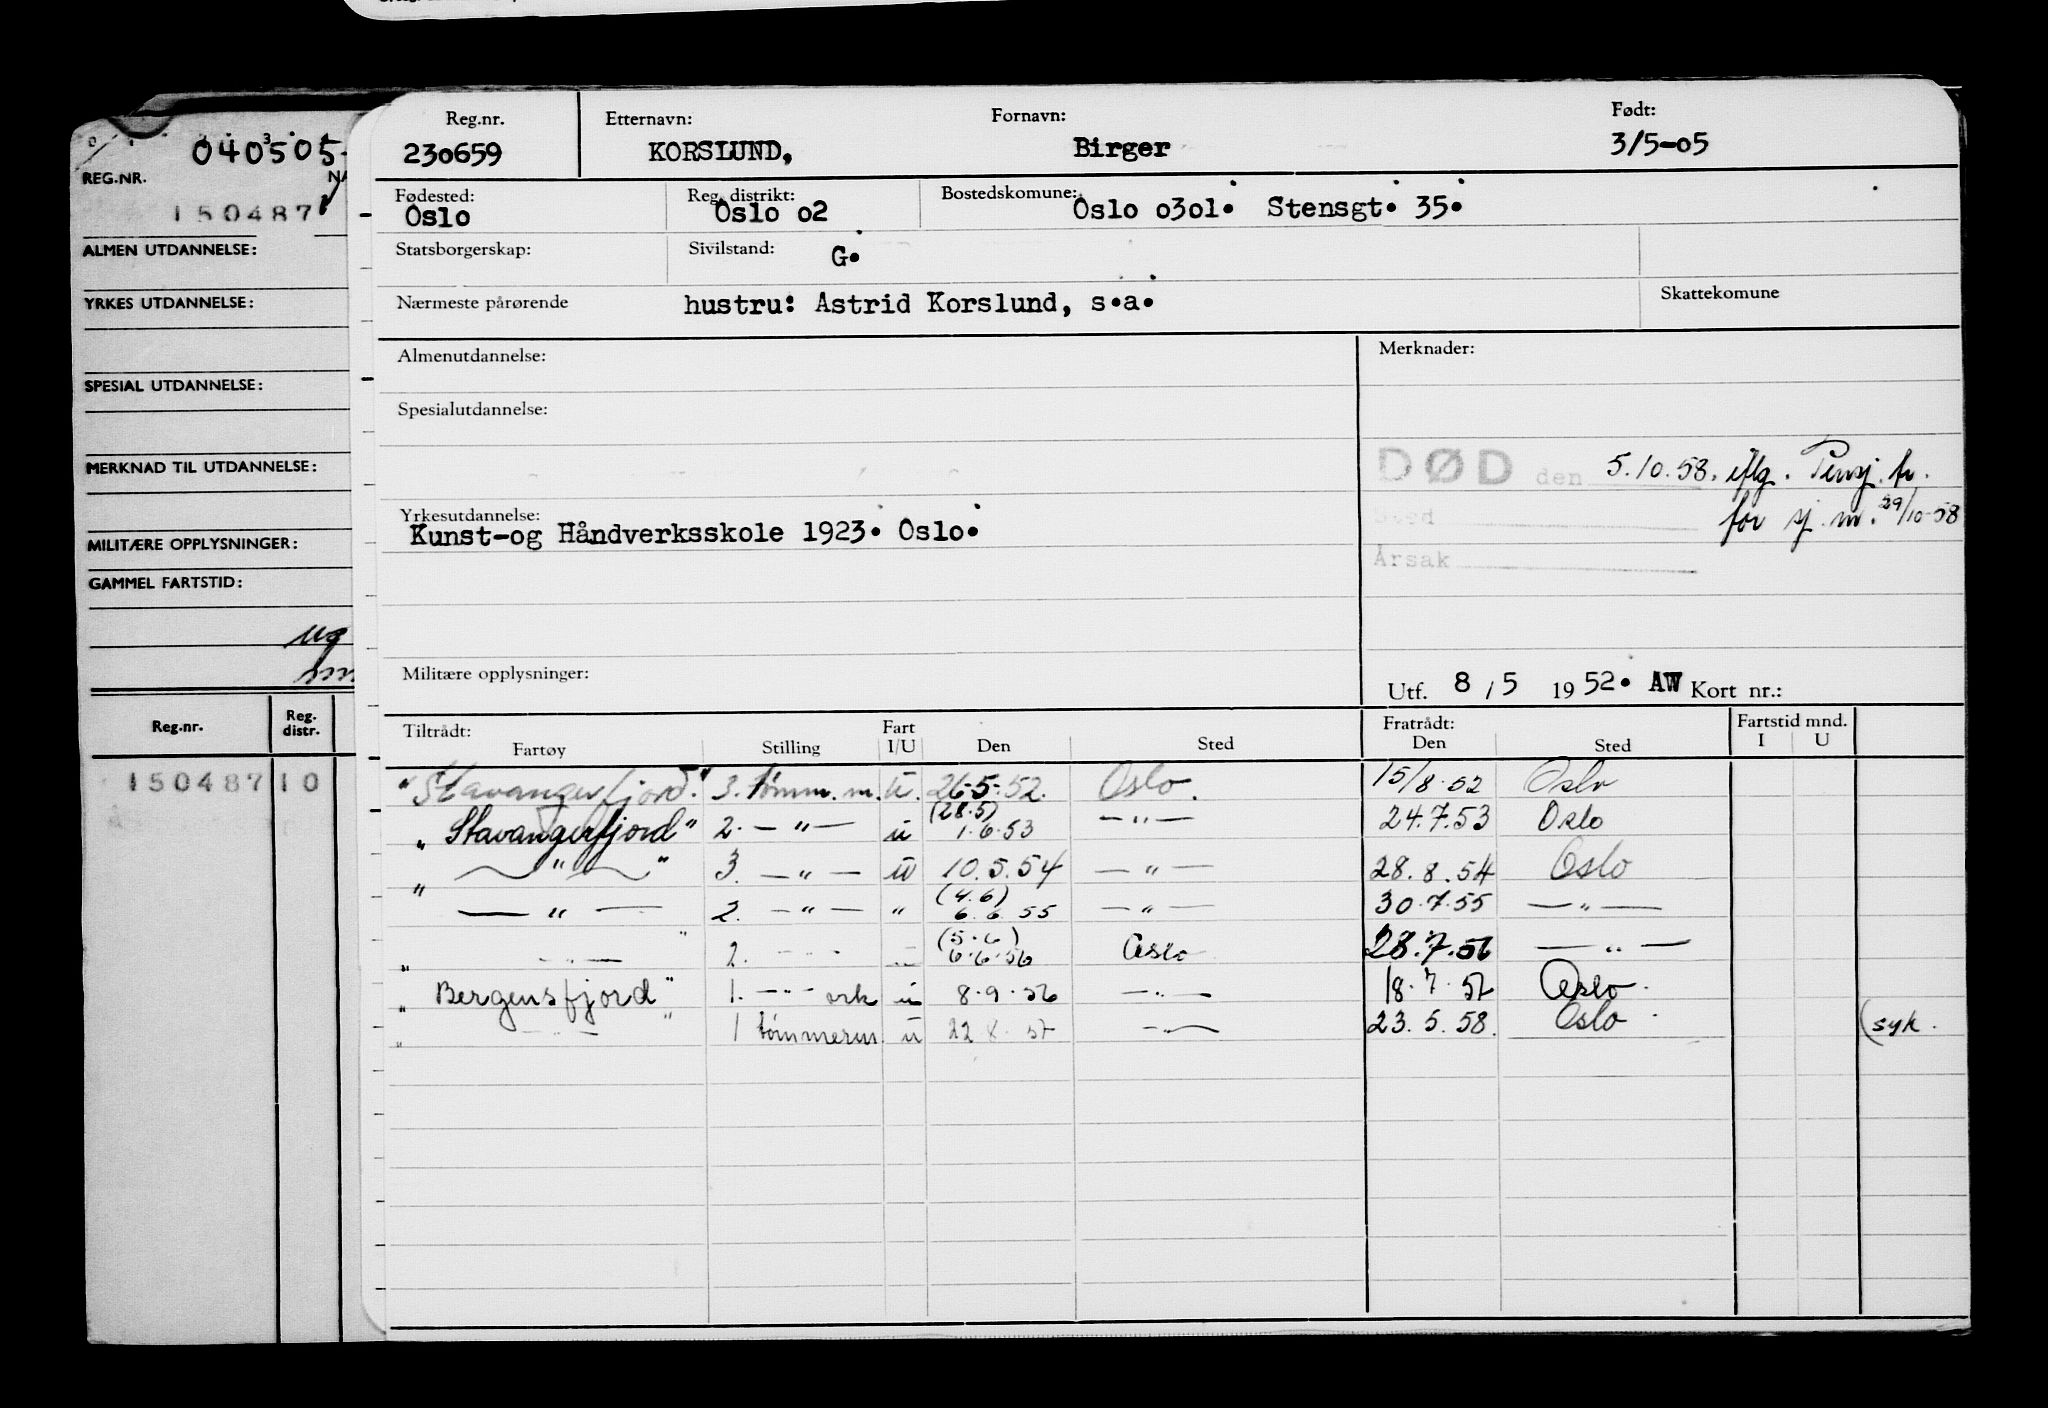 040505
REG.NR.
150487
ALMEN UTDANNELSE:
YRKES UTDANNELSE:
SPESIAL UTDANNELSE:
MERKNAD TIL UTDANNELSE:
MILITÆRE OPPLYSNINGER:
GAMMEL FARTSTID:
Reg.nr. Reg. distr.
150487 10
Reg.nr. Etternavn: Fornavn: Født:
230659 KORSLUND, Birger 3/5-05
Fødested: Reg. distrikt: Bostedskomune:
Oslo Oslo o2 Oslo o3o1. Stensgt. 35.
Statsborgerskap: Sivilstand: G.
Nærmeste pårørende hustru: Astrid Korslund, s.a. Skattekomune
Almenutdannelse: Merknader:
Spesialutdannelse:
DØD den 5.10.58. iflg. Pensj. tr.
Sted for sj.m. 29/10-58
Årsak
Yrkesutdannelse:
Kunst-og Håndverksskole 1923. Oslo.
Militære opplysninger:
Utf. 8/5 1952. AW Kort nr.:
Tiltrådt: Fart Fratrådt: Fartstid mnd.
Fartøy Stilling I/U Den Sted Den Sted I U
"Stavangerfjord" 3. tømm.m. U. 26-5-52. Oslo. 15/8.52 Oslo
(28.5)
"Stavangerfjord" 2. — " — u 1.6.53 — " — 24.7.53 Oslo
" — " — " 3. — " — u 10.5.54 — " — 28.8.54 Oslo
(4.6)
" — " — 2. — " — " 6.6.55 — " — 30.7.55 — " —
(5.6)
" — " — " 2. — " — — " — 6.6.56 Oslo 28.7.56 — " —
"Bergensfjord" 1. — " — ork u 8.9.56 — " — 18.7.57 Oslo.
" — " — " 1 tømmerm u 22 8. 57 — " — 23.5.58. Oslo. (syk.